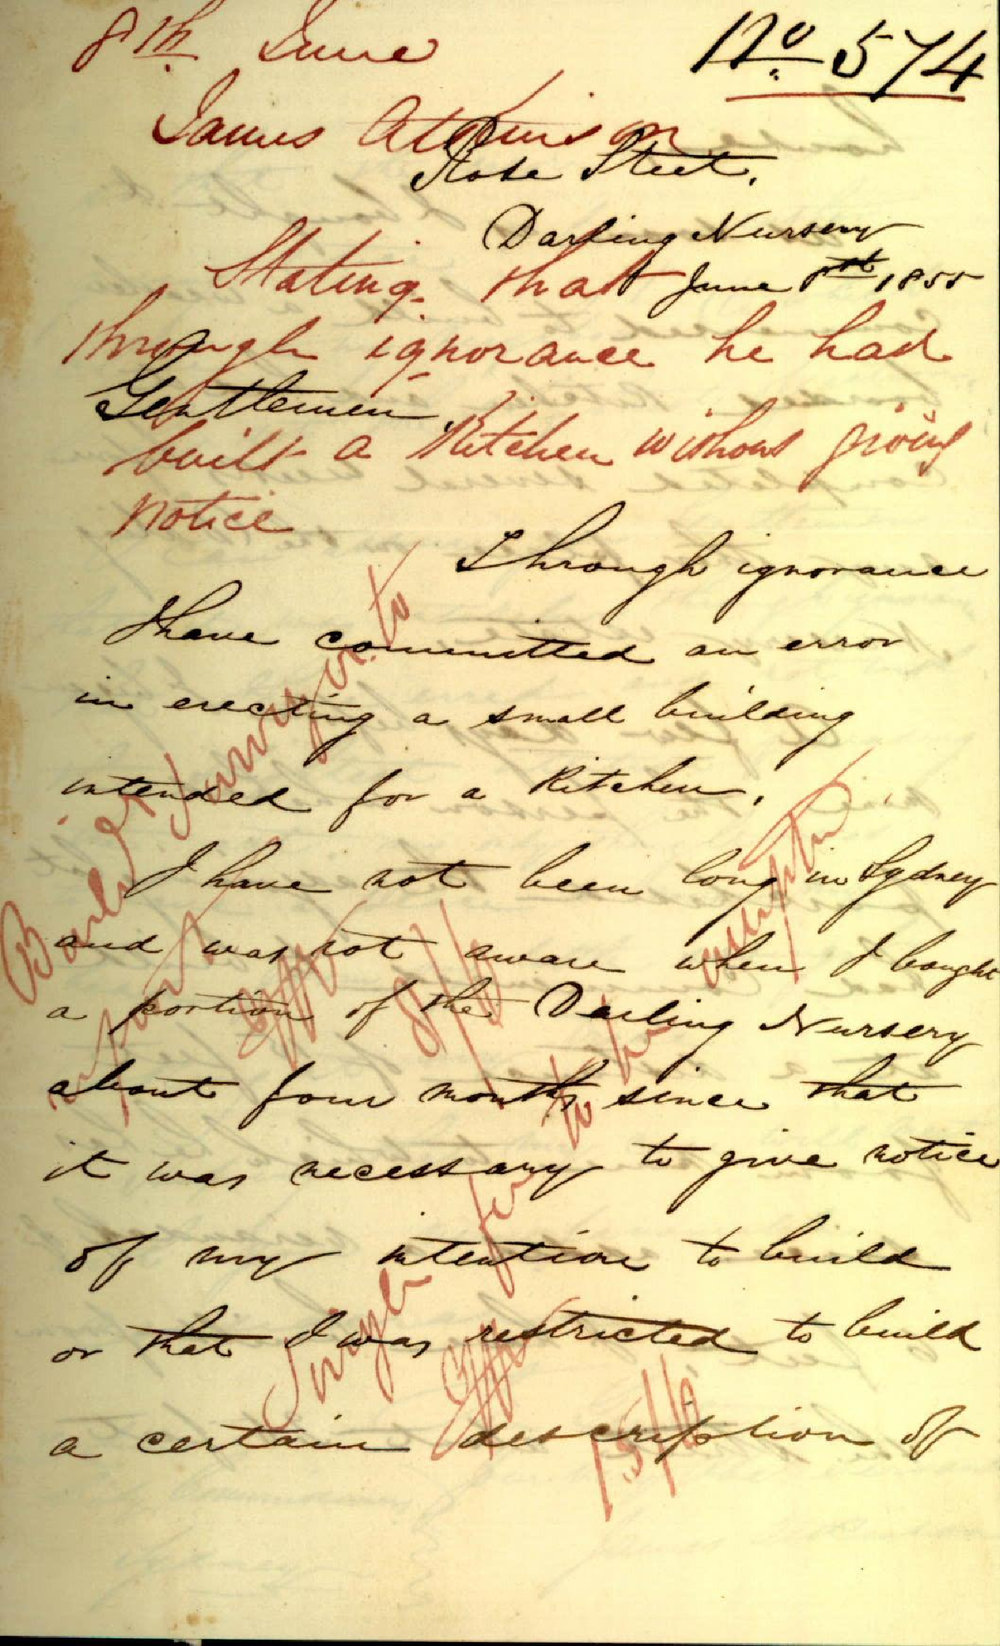 8th June
No 574
James Atkinson
Rose Street.
Darling Nursery
Stating that
June 8th, 1855
through ignorance he had
Gentlemen,
built a Kitchen without giving
notice
Through ignorance
I have committed an error
in erecting a small building
intended for a Kitchen.
I have not been long in Sydney
and was not aware when I bought
a portion of the Darling Nursery
about four months since that
it was necessary to give notice
of my intention to build
or that I was restricted to build
a certain description of
to
report
8/6
to his
15/6